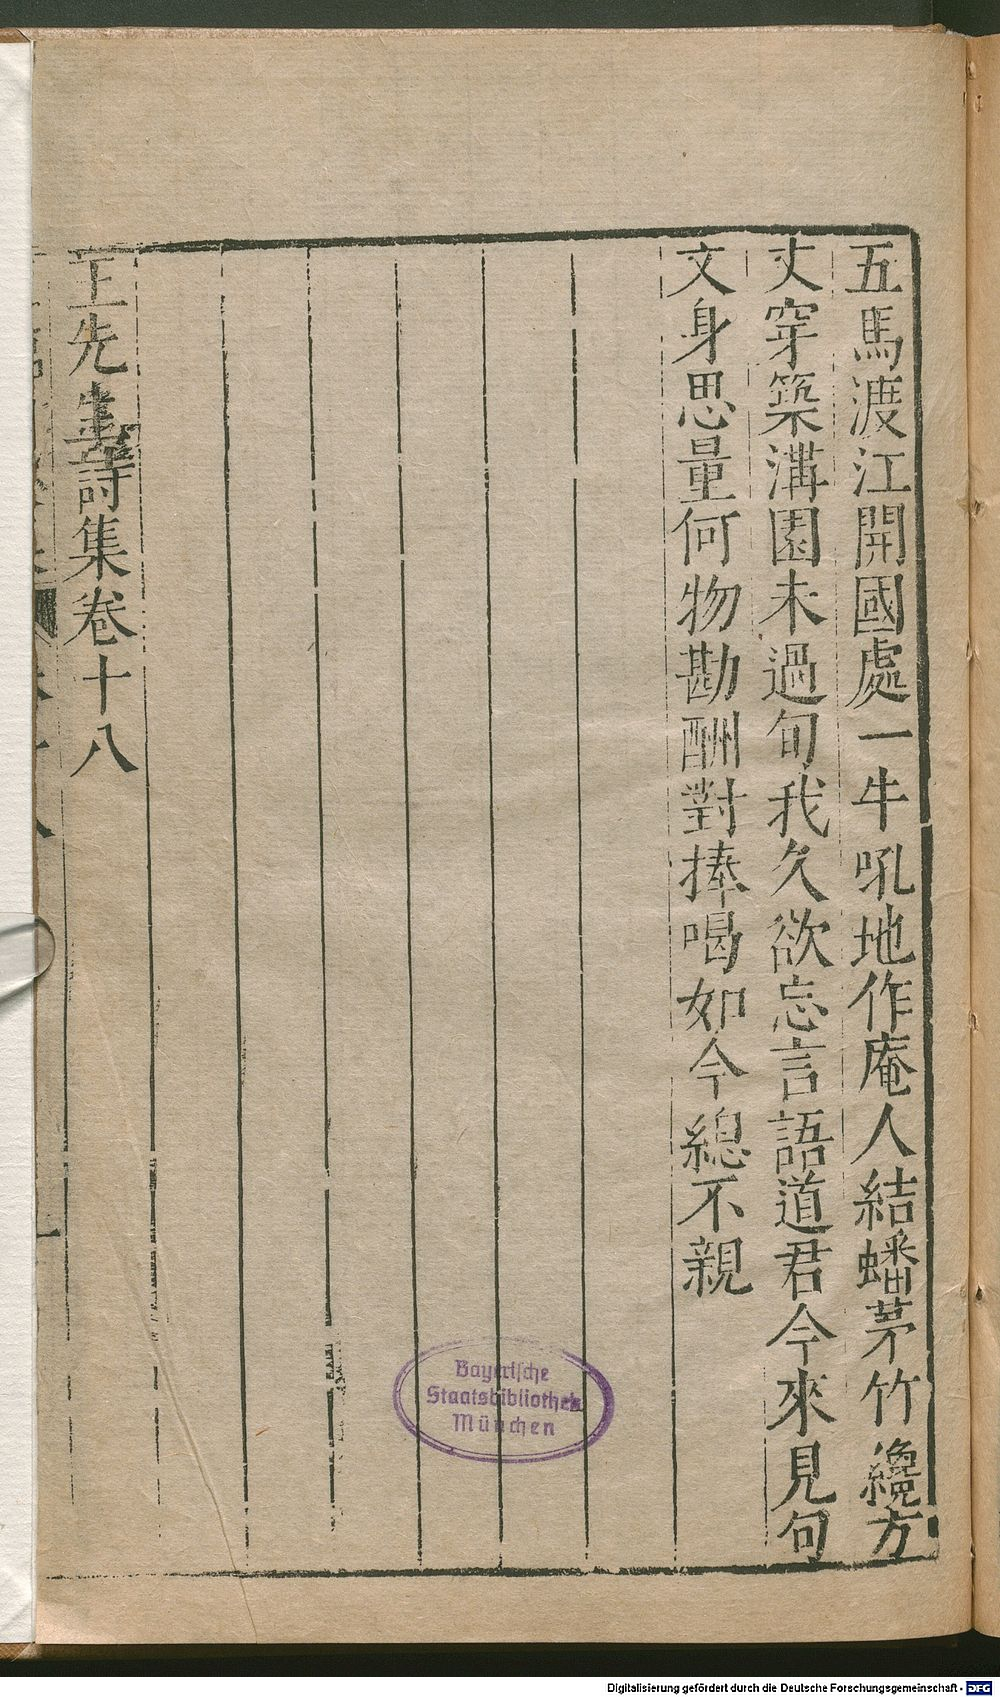 五馬渡江開國處一牛吼地作庵人結蟠茅竹纔方
丈穿築溝園未過旬我久欲忘言語道君今來見句
文身思量何物勘酬對捧喝如今總不親
王先生詩集卷十八
Bayerische
Staatsbibliothek
München
Digitalisierung gefördert durch die Deutsche Forschungsgemeinschaft - DFG